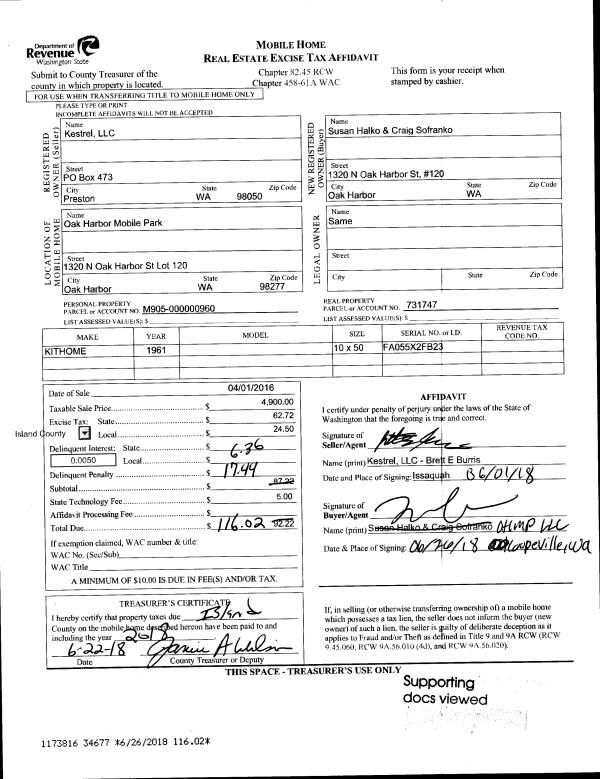 Department of
Revenue
Washington State
MOBILE HOME
REAL ESTATE EXCISE TAX AFFIDAVIT
Submit to County Treasurer of the
county in which property is located.
Chapter 82.45 RCW
Chapter 458-61A WAC
This form is your receipt when
stamped by cashier.
FOR USE WHEN TRANSFERRING TITLE TO MOBILE HOME ONLY
PLEASE TYPE OR PRINT
INCOMPLETE AFFIDAVITS WILL NOT BE ACCEPTED
REGISTERED
OWNER (Seller)
Name
Kestrel, LLC
Street
PO Box 473
City State Zip Code
Preston WA 98050
NEW REGISTERED
OWNER (Buyer)
Name
Susan Halko & Craig Sofranko
Street
1320 N Oak Harbor St, #120
City State Zip Code
Oak Harbor WA
LOCATION OF
MOBILE HOME
Name
Oak Harbor Mobile Park
Street
1320 N Oak Harbor St Lot 120
City State Zip Code
Oak Harbor WA 98277
LEGAL OWNER
Name
Same
Street
City State Zip Code
PERSONAL PROPERTY
PARCEL or ACCOUNT NO. M905-000000960
LIST ASSESSED VALUE(S): $
REAL PROPERTY
PARCEL or ACCOUNT NO. 731747
LIST ASSESSED VALUE(S): $
MAKE YEAR MODEL SIZE SERIAL NO. or I.D. REVENUE TAX
CODE NO.
KITHOME 1961 10 x 50 FA055X2FB23
Date of Sale 04/01/2016
Taxable Sale Price $ 4,900.00
Excise Tax: State $ 62.72
Island County Local $ 24.50
Delinquent Interest: State $ 6.36
0.0050 Local $
Delinquent Penalty $ 17.44
Subtotal $ 87.22
State Technology Fee $ 5.00
Affidavit Processing Fee $
Total Due $ 116.02 92.22
If exemption claimed, WAC number & title:
WAC No. (Sec/Sub)
WAC Title
A MINIMUM OF $10.00 IS DUE IN FEE(S) AND/OR TAX.
AFFIDAVIT
I certify under penalty of perjury under the laws of the State of
Washington that the foregoing is true and correct.
Signature of
Seller/Agent
Name (print) Kestrel, LLC - Brett E Burris
Date and Place of Signing: Issaquah 06/01/18
Signature of
Buyer/Agent
Name (print) Susan Halko & Craig Sofranko OHMP LLC
Date & Place of Signing: 06/26/18 Coupeville, Wa
TREASURER'S CERTIFICATE
I hereby certify that property taxes due Island
County on the mobile home described hereon have been paid to and
including the year 2018
6-22-18
Date County Treasurer or Deputy
If, in selling (or otherwise transferring ownership of) a mobile home
which possesses a tax lien, the seller does not inform the buyer (new
owner) of such a lien, the seller is guilty of deliberate deception as it
applies to Fraud and/or Theft as defined in Title 9 and 9A RCW (RCW
9.45.060, RCW 9A.56.010 (4d), and RCW 9A.56.020).
THIS SPACE - TREASURER'S USE ONLY
Supporting
docs viewed
1173816 34677 *6/26/2018 116.02*